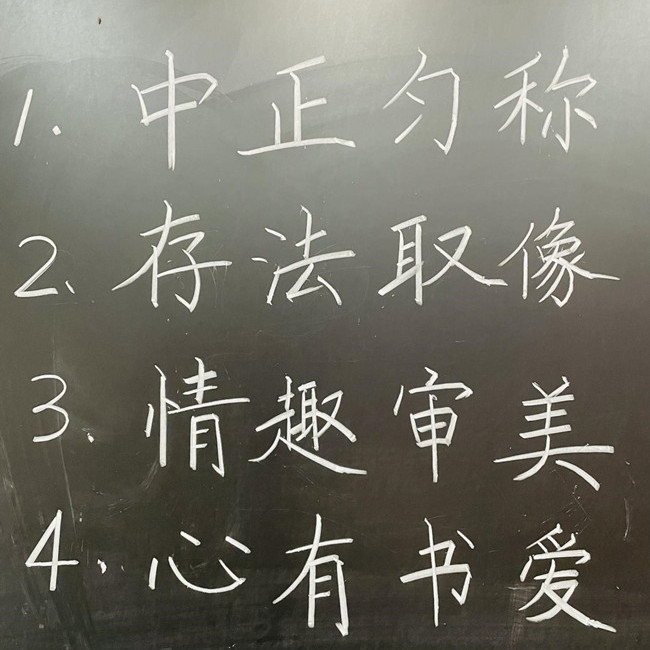 1. 中正匀称
2、存法取像
3、情趣审美
4、心有书爱